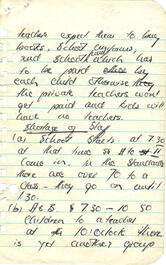 teachers expect them to buy
books, school uniforms,
and school which has
to be paid by
each child otherwise they
the private teachers won't
get paid and kids will
have no teachers.
shortage of staff
(a) School starts at 7.30
at that time to
Come in. in the Standards
there are over 70 to a
Class - they go on until
1.30.
(b) 7.30 - 10 50
Children to a teacher
at 10 o'clock there
is yet another group